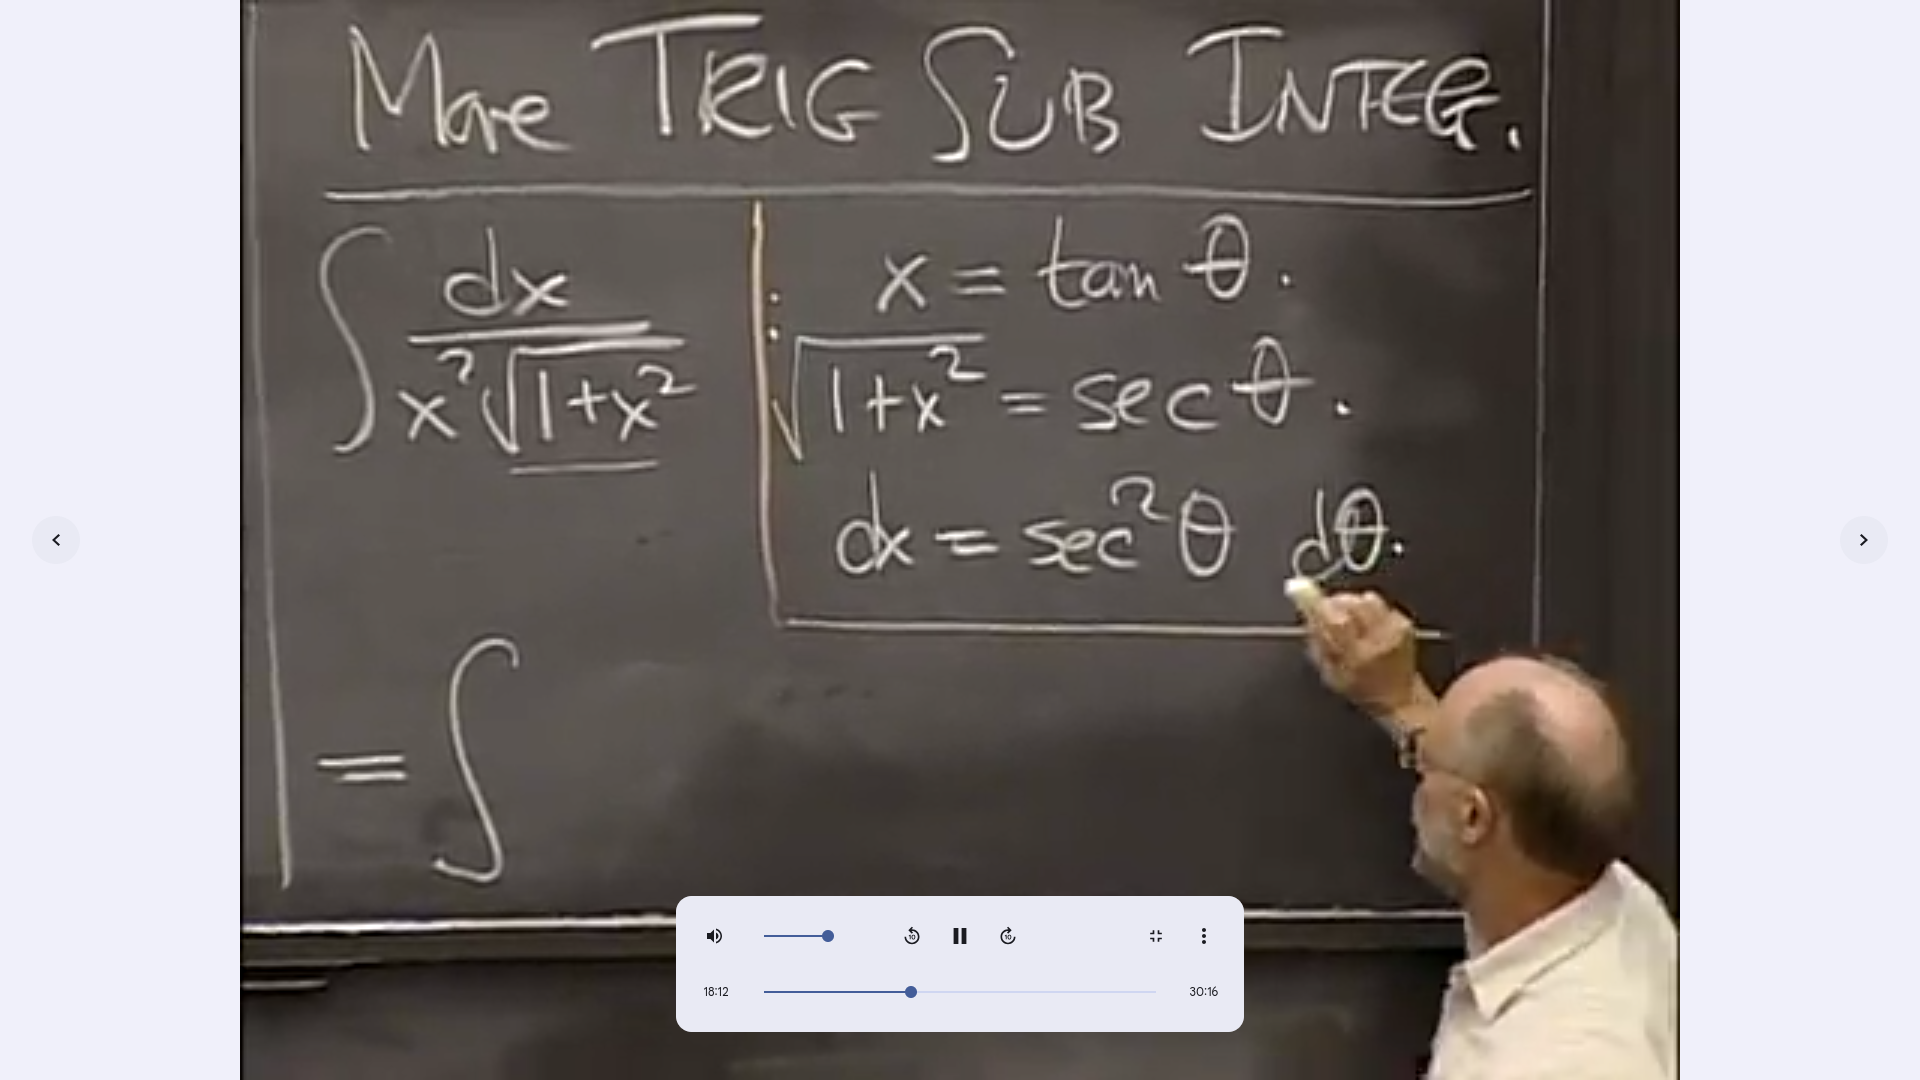 More TRIG SUB INTEG.
∫ dx / x²√1+x²
x = tan θ.
√1+x² = sec θ.
dx = sec² θ dθ.
= ∫
10
10
18:12
30:16